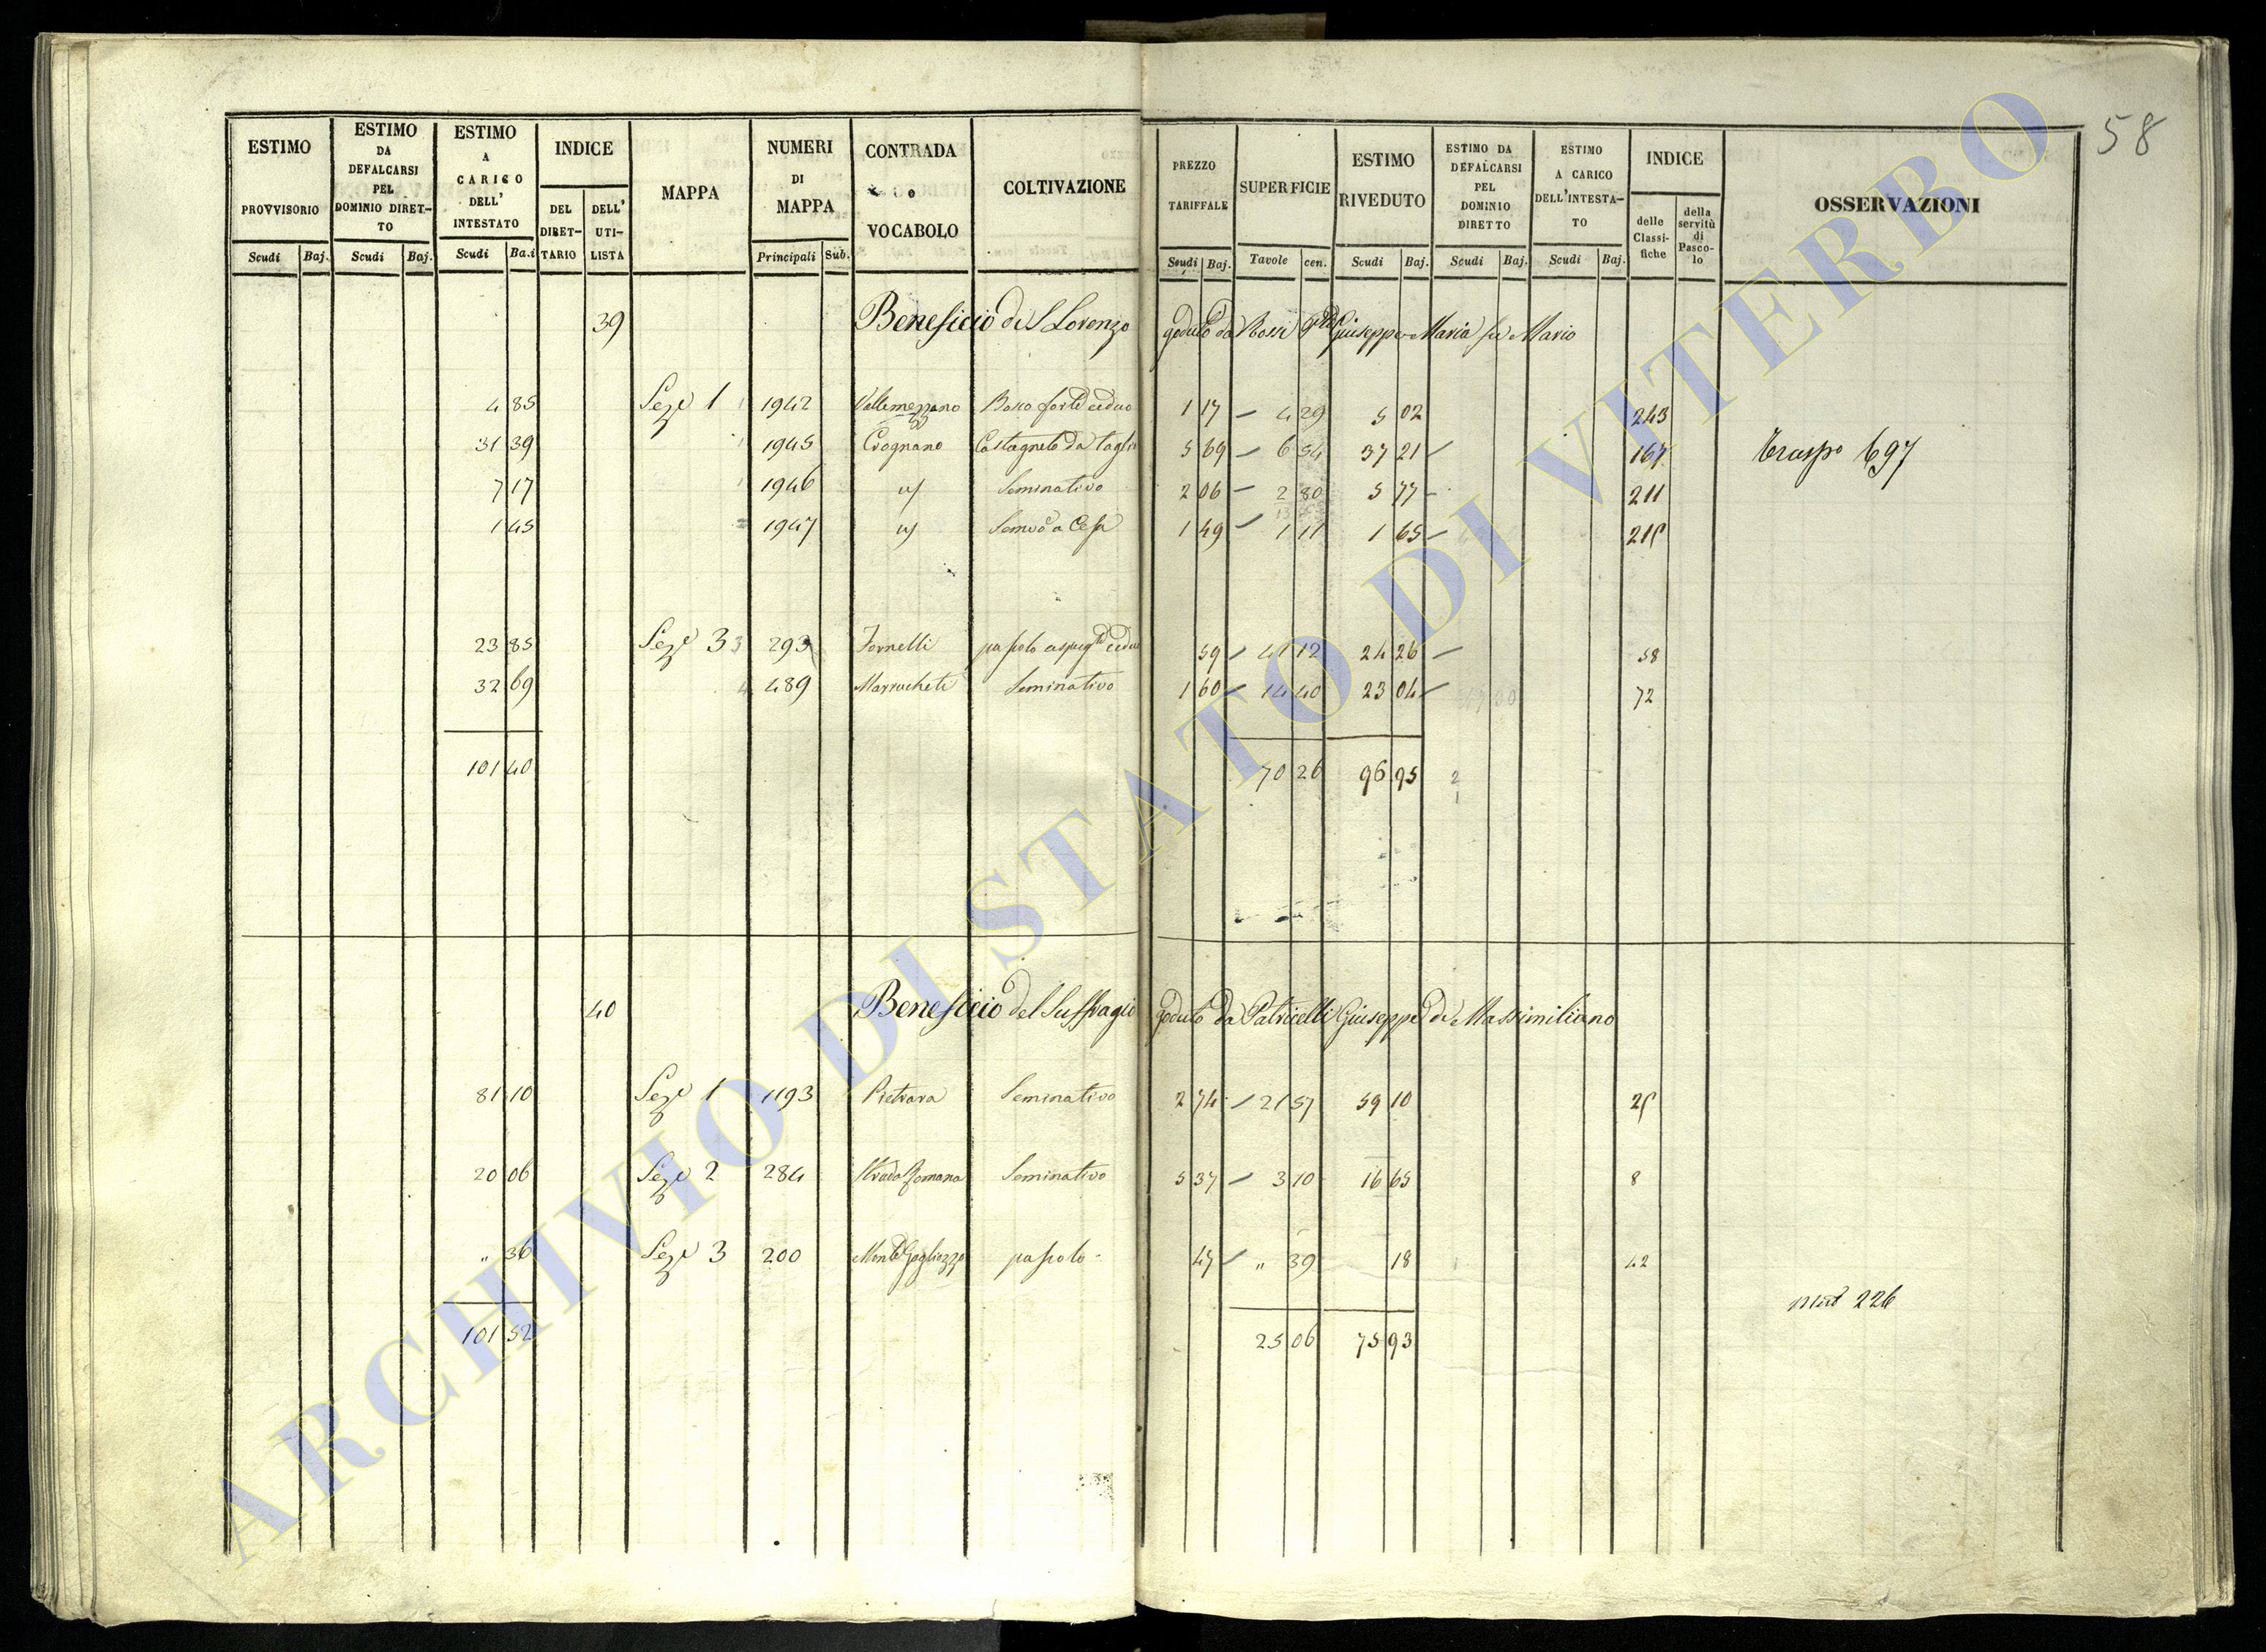 58
ESTIMO PROVVISORIO
Scudi Baj.
ESTIMO DA DEFALCARSI PEL DOMINIO DIRET-TO
Scudi Baj.
ESTIMO A CARICO DELL' INTESTATO
Scudi Ba.i
INDICE
DEL DIRET-TARIO
DELL' UTI-LISTA
MAPPA
NUMERI DI MAPPA
Principali Sub.
CONTRADA o VOCABOLO
COLTIVAZIONE
PREZZO TARIFFALE
Scudi Baj.
SUPERFICIE
Tavole cen.
ESTIMO RIVEDUTO
Scudi Baj.
ESTIMO DA DEFALCARSI PEL DOMINIO DIRETTO
Scudi Baj.
ESTIMO A CARICO DELL'INTESTA-TO
Scudi Baj.
INDICE
delle Classi-fiche
della servitù di Pasco-lo
OSSERVAZIONI
39 Beneficio di S Lorenzo goduto da Rossi Giuseppe Maria fu Mario
4 85 Seze 1 1942 Vallemezzano Bosco forte ceduo 1 17 – 4 29 5 02 243
31 39 1945 Crognano Castagneto da taglio 5 69 – 6 54 37 21 – 167 Traspo 697
7 17 1946 " Seminativo 2 06 – 2 80 5 77 – 211
1 45 1947 " Semvo a Cesa 1 49 – 1 11 1 65 – 215
23 85 Seze 3 3 293 Fornelli pascolo cespugto ceduo 59 – 41 12 24 26 – 58
32 69 4 489 Marrucheti Seminativo 1 60 – 14 40 23 04 – 72
101 40 70 26 96 95
40 Beneficio del Suffragio goduto da Patricelli Giuseppe di Massimiliano
81 10 Seze 1 1193 Pietrara Seminativo 2 74 – 21 57 59 10 25
20 06 Seze 2 284 Strada Romana Seminativo 5 37 – 3 10 16 65 8
" 36 Seze 3 200 Monte Gogliozzo pascolo 47 – " 39 18 42
226
101 52 25 06 75 93
ARCHIVIO DI STATO DI VITERBO